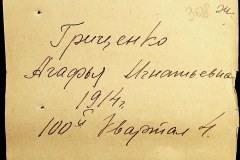 308 ж
Гриценко
Агафья Игнатьевна
1914 г.
100й Квартал 4.